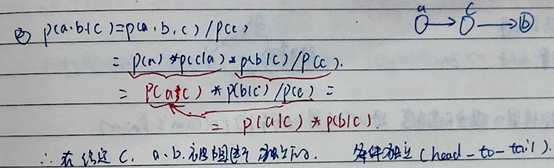 ② p(a·b|c)=p(a·b·c)/p(c) a c b
= p(a)*p(c|a)*p(b|c)/p(c).
= p(a*c) * p(b|c)/p(c) =
= p(a|c)*p(b|c).
∴ 在给定 c, a·b. 被阻断 独立的. 条件独立 (head-to-tail)